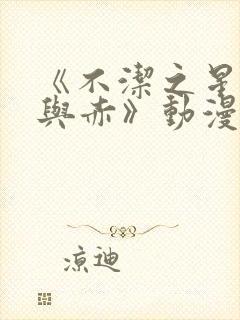 《不潔之星
與赤》動漫
涼迪